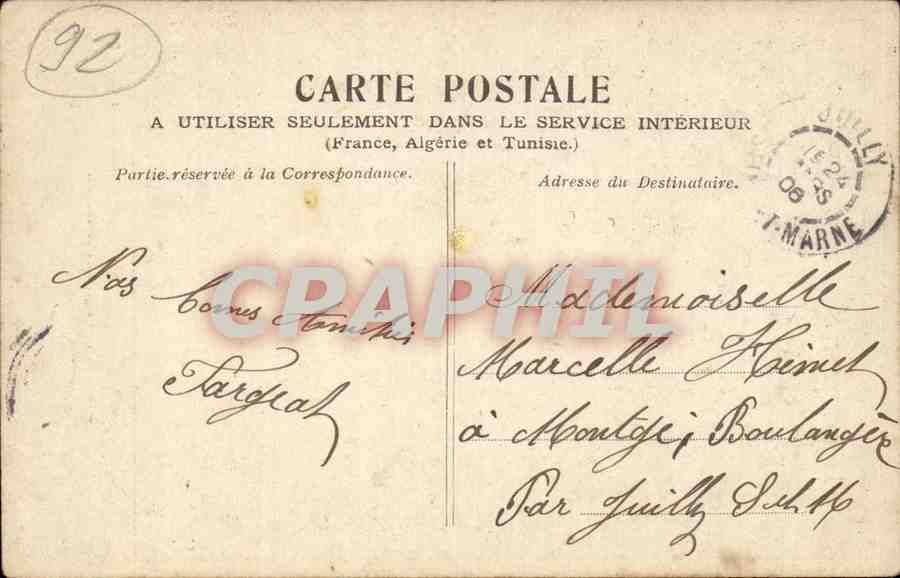 92
CARTE POSTALE
A UTILISER SEULEMENT DANS LE SERVICE INTÉRIEUR
(France, Algérie et Tunisie.)
Partie réservée à la Correspondance.
Adresse du Destinataire.
JUILLY
24
06
ET-MARNE
CPAPHIL
Nos
bonnes Amitiés
Fargeat
Mademoiselle
Marcelle Himet
à Montgé, Boulangère
Par Juilly S et M